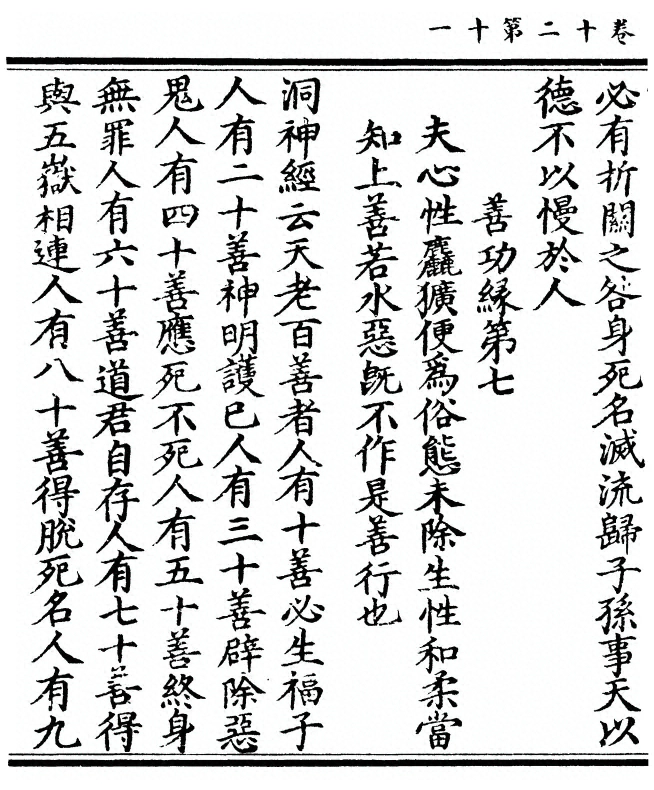 卷十二第十一
必有折關之咎身死名滅流歸子孫事天以
德不以慢於人
善功緣第七
夫心性麤獷便爲俗態未除生性和柔當
知上善若水惡旣不作是善行也
洞神經云天老百善者人有十善必生福子
人有二十善神明護已人有三十善辟除惡
鬼人有四十善應死不死人有五十善終身
無罪人有六十善道君自存人有七十善得
與五嶽相連人有八十善得脫死名人有九